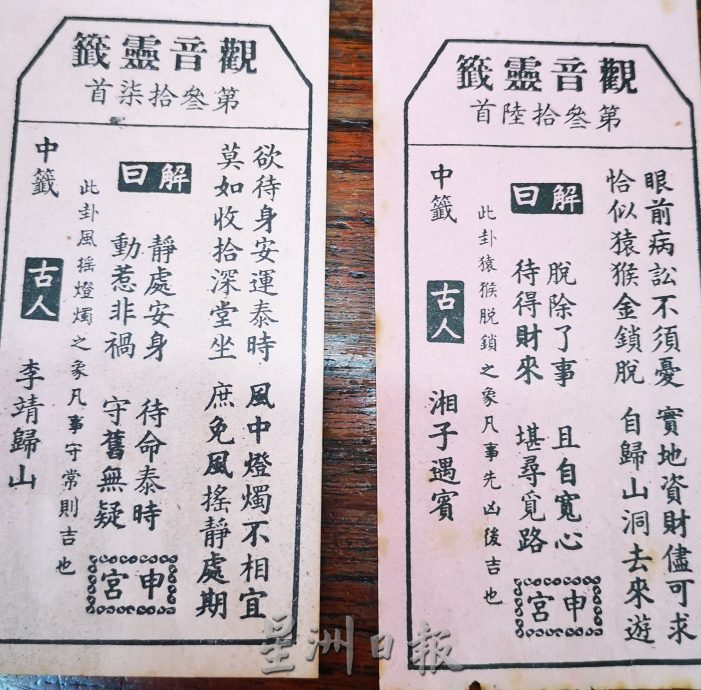 觀音靈籤
第叁拾陸首
眼前病訟不須憂 實地資財儘可求
恰似猿猴金鎖脫 自歸山洞去來遊
解曰
脫除了事 且自寬心
待得財來 堪尋覓路
申宮
此卦猿猴脫鎖之象凡事先凶後吉也
中籤 古人 湘子遇賓
觀音靈籤
第叁拾柒首
欲待身安運泰時 風中燈燭不相宜
莫如收拾深堂坐 庶免風搖靜處期
解曰
靜處安身 待命泰時
動惹非禍 守舊無疑
申宮
此卦風搖燈燭之象凡事守常則吉也
中籤 古人 李靖歸山
星洲日報